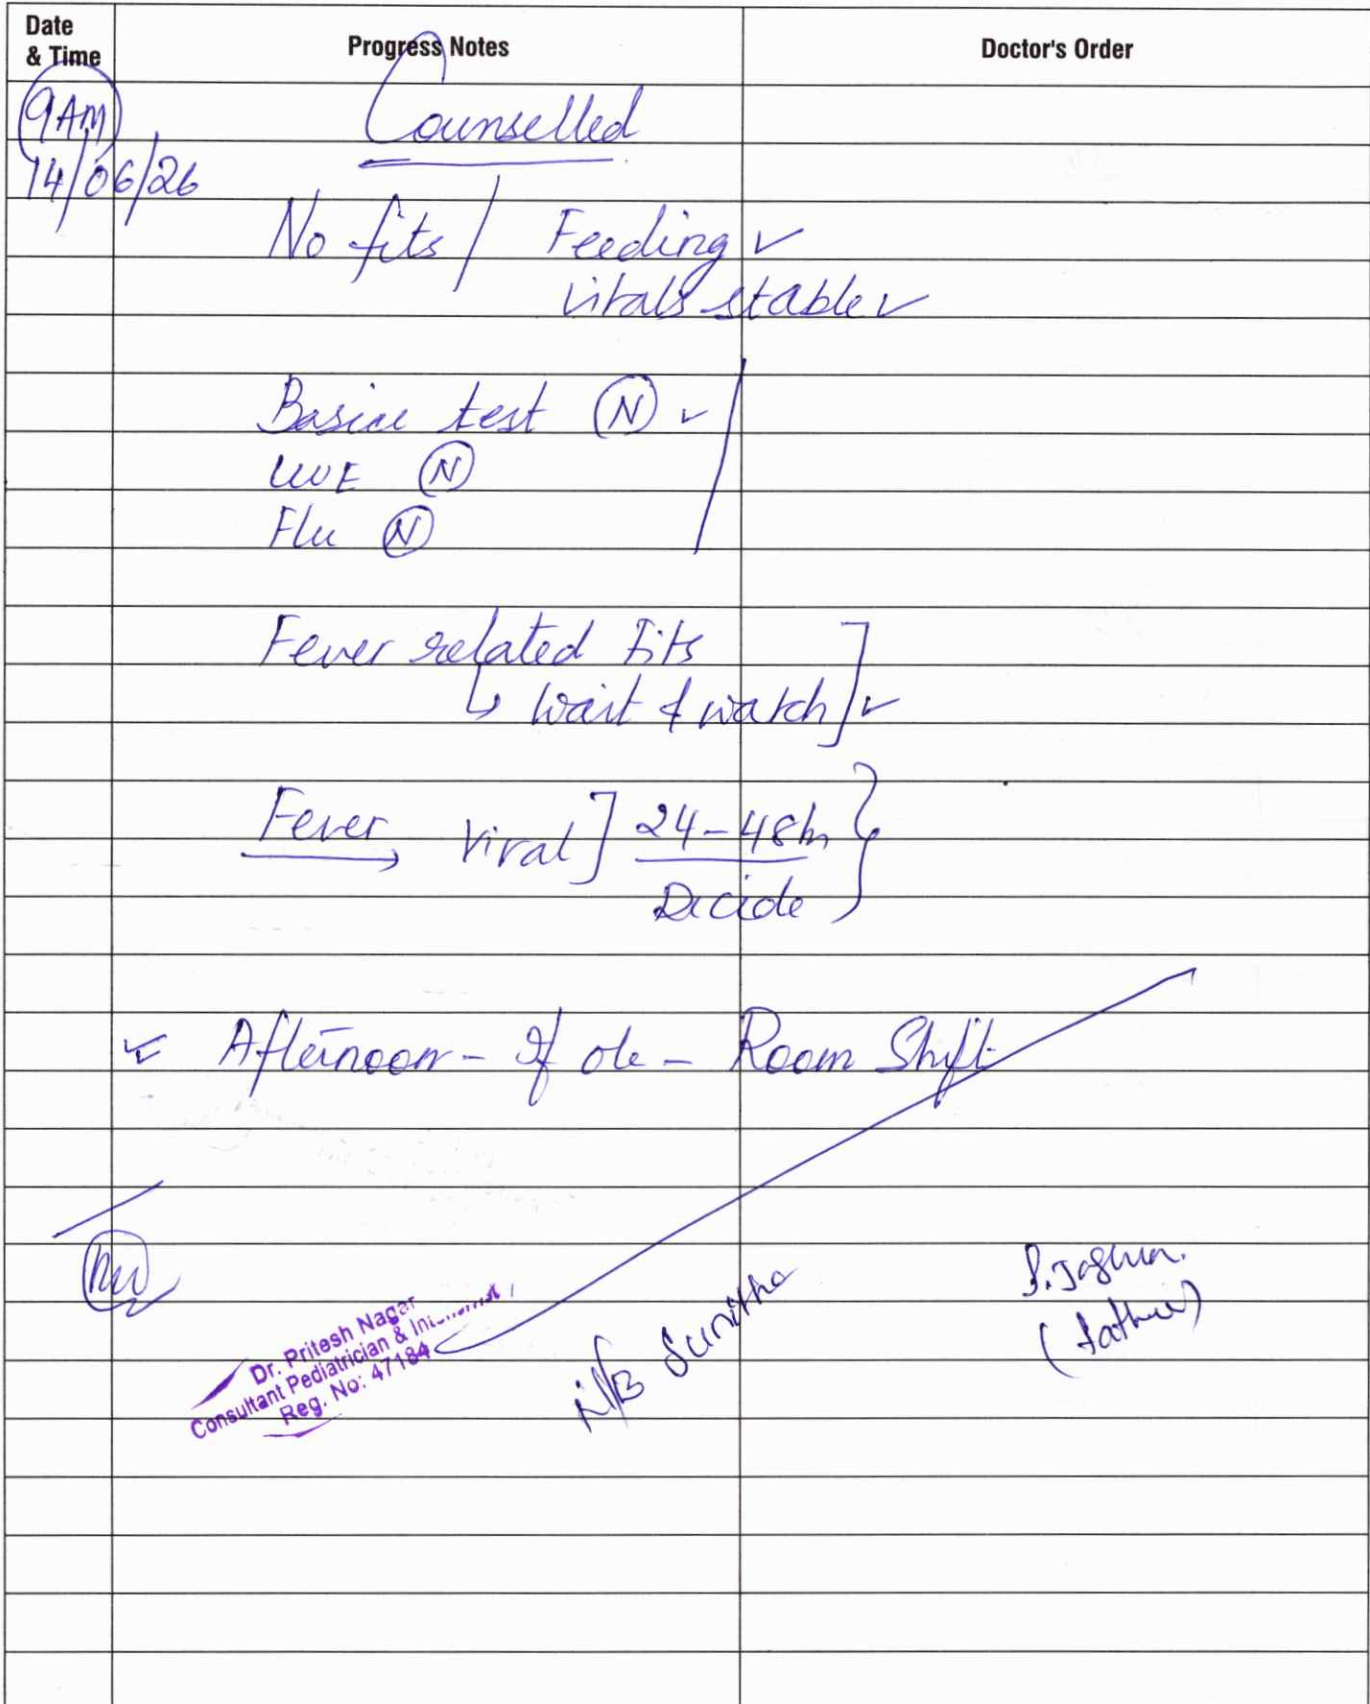 Date & Time
Progress Notes
Doctor's Order
9AM
14/06/26
Counselled
No fits / Feeding ✓
vitals stable ✓
Basic test (N) ✓
CUE (N)
Flu (N)
Fever related Fits
↳ wait & watch ] ✓
Fever → Viral ] 24-48hr }
Decide
✓ Afternoon - If ok - Room Shift
Dr. Pritesh Nagar
Consultant Pediatrician &
Reg. No: 47184
N/B Sunitha
(father)